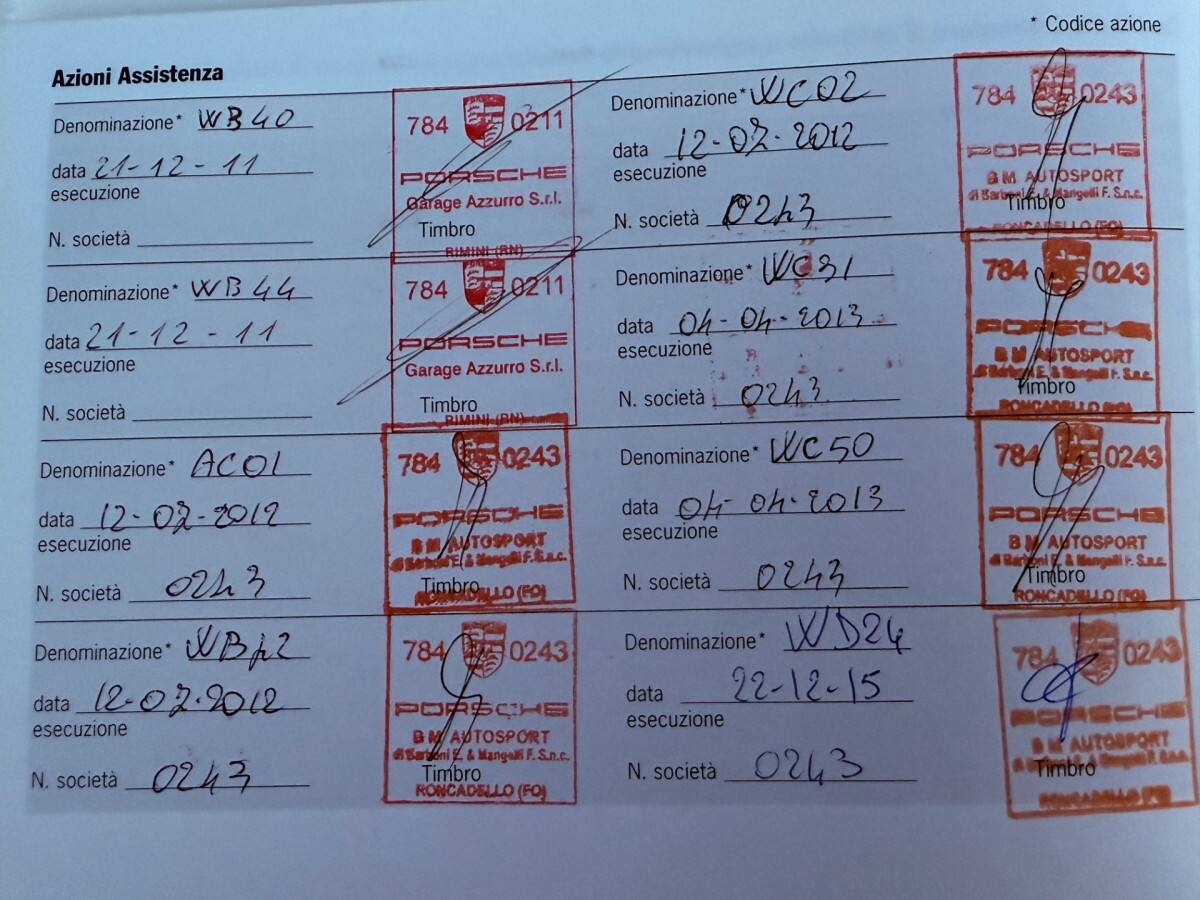 * Codice azione
Azioni Assistenza
Denominazione* WB40
data 21-12-11
esecuzione
N. società
784 0211
PORSCHE
Garage Azzurro S.r.l.
Timbro
RIMINI (RN)
Denominazione* WC02
data 12-07-2012
esecuzione
N. società 0243
784 0243
PORSCHE
BM AUTOSPORT
di Barboni E. & Mangelli F. S.n.c.
Timbro
RONCADELLO (FO)
Denominazione* WB44
data 21-12-11
esecuzione
N. società
784 0211
PORSCHE
Garage Azzurro S.r.l.
Timbro
RIMINI (RN)
Denominazione* WC31
data 04-04-2013
esecuzione
N. società 0243
784 0243
PORSCHE
BM AUTOSPORT
di Barboni E. & Mangelli F. S.n.c.
Timbro
RONCADELLO (FO)
Denominazione* AC01
data 12-07-2012
esecuzione
N. società 0243
784 0243
PORSCHE
BM AUTOSPORT
di Barboni E. & Mangelli F. S.n.c.
Timbro
RONCADELLO (FO)
Denominazione* WC50
data 04-04-2013
esecuzione
N. società 0243
784 0243
PORSCHE
BM AUTOSPORT
di Barboni E. & Mangelli F. S.n.c.
Timbro
RONCADELLO (FO)
Denominazione*
data 12-07-2012
esecuzione
N. società 0243
784 0243
PORSCHE
BM AUTOSPORT
di Barboni E. & Mangelli F. S.n.c.
Timbro
RONCADELLO (FO)
Denominazione* WD24
data 22-12-15
esecuzione
N. società 0243
784 0243
PORSCHE
BM AUTOSPORT
di Barboni E. & Mangelli F. S.n.c.
Timbro
RONCADELLO (FO)